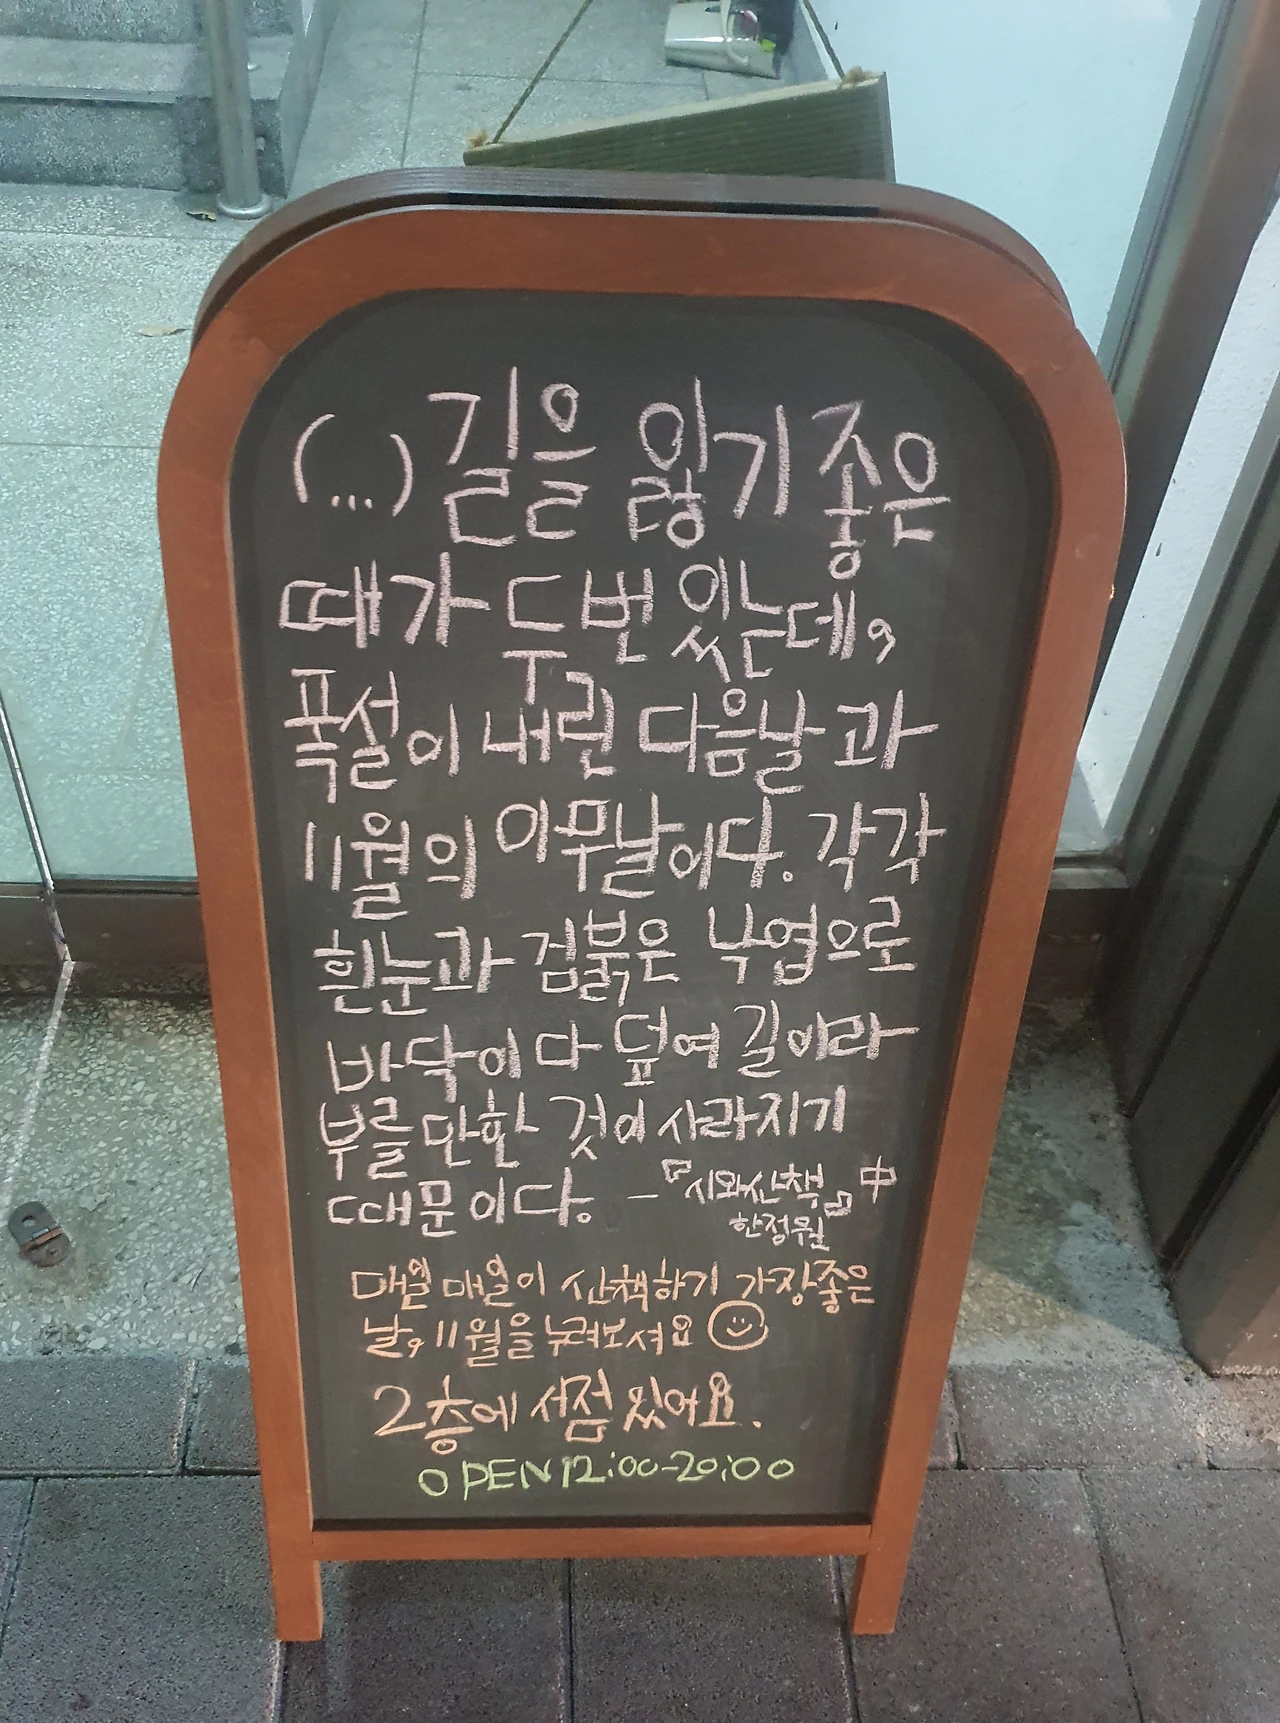 (...) 길을 잃기 좋은
때가 두 번 있는데,
폭설이 내린 다음날과
11월의 아무날이다. 각각
흰눈과 검붉은 낙엽으로
바닥이 다 덮여 길이라
부를 만한 것이 사라지기
때문이다. -『시와 산책』中
한정원
매일매일이 산책하기 가장 좋은
날, 11월을 누려보셔요
2층에 서점 있어요.
OPEN 12:00-20:00